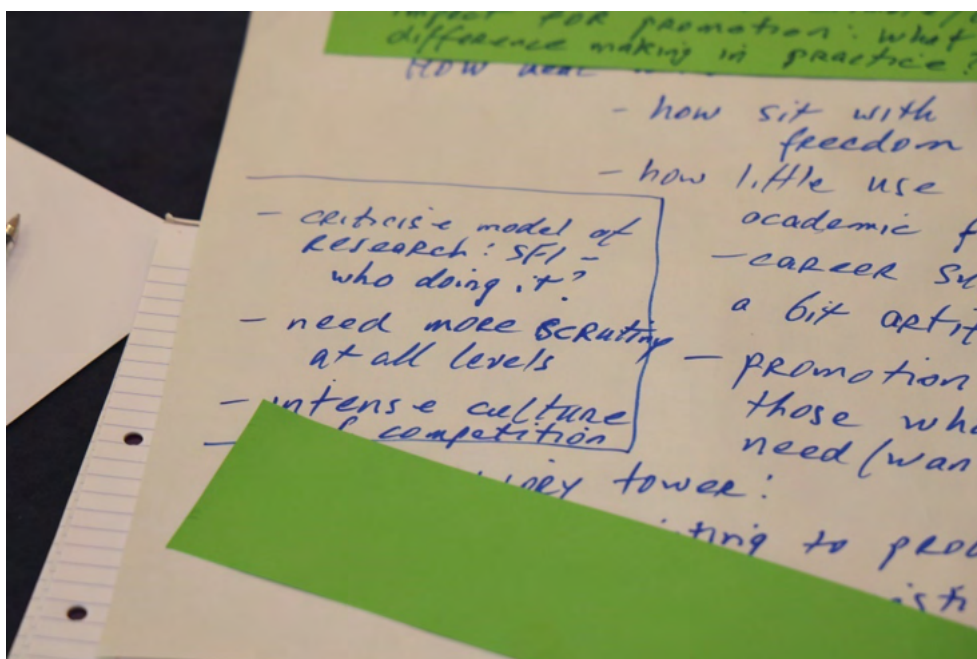 impact for promotion: what
difference making in practice?
How
- how sit with
freedom
- how little use
academic f
- career su
a bit arti
- promotion
those who
need (wan
- criticise model of
research: SFI -
who doing it?
- need more scrutiny
at all levels
- intense culture
of competition
-
ivory tower:
ting to prod
isti